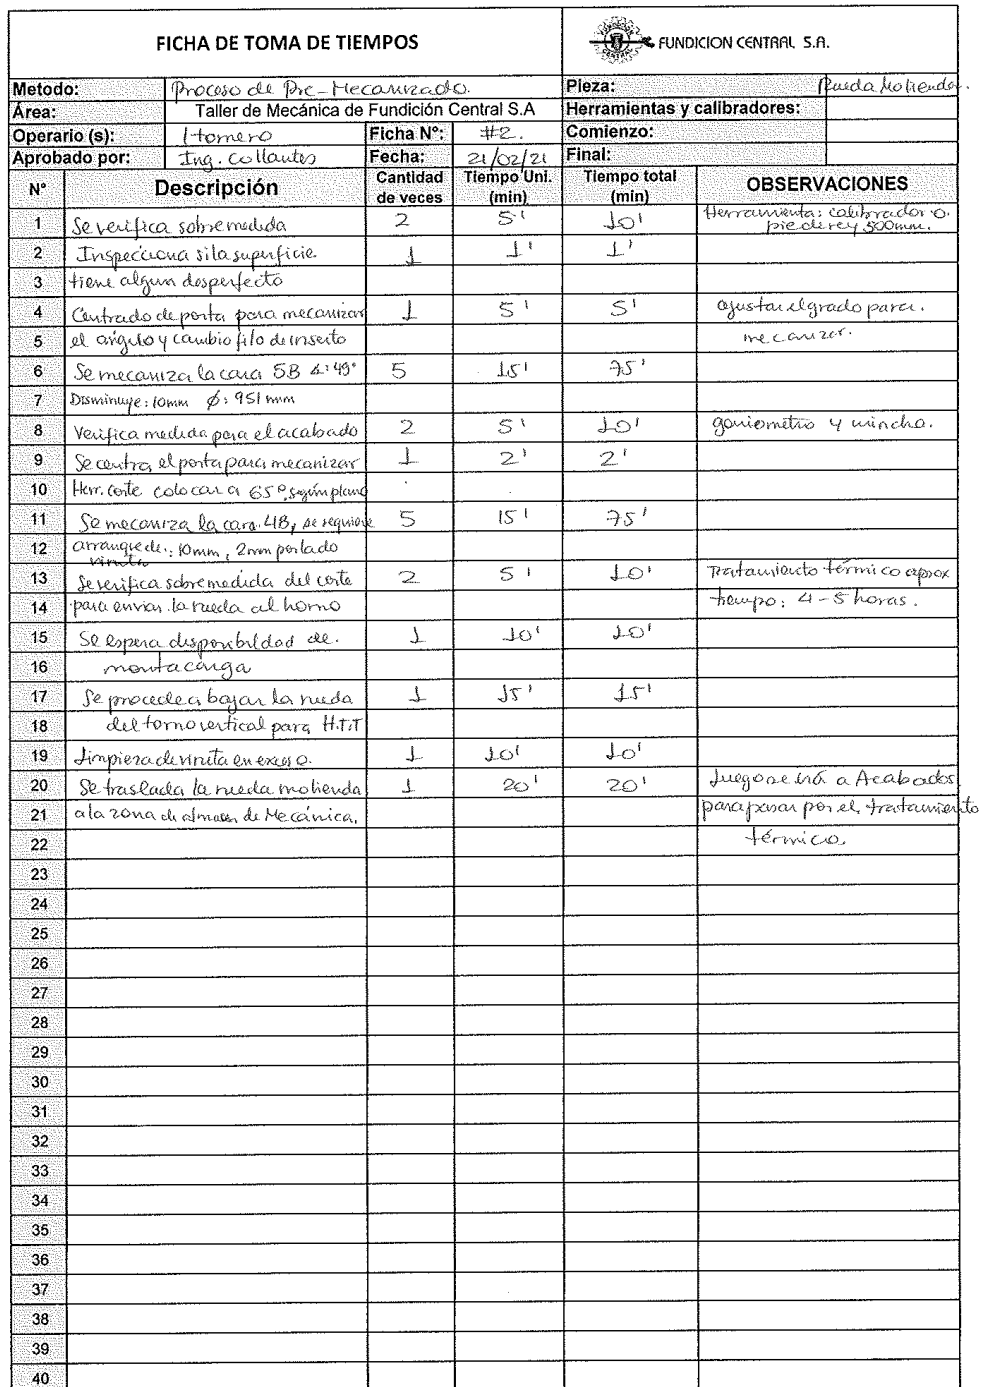 FICHA DE TOMA DE TIEMPOS
FUNDICION CENTRAL S.A.
Metodo: Proceso de Pre-Mecanizado. Pieza: Rueda Molienda.
Área: Taller de Mecánica de Fundición Central S.A Herramientas y calibradores:
Operario (s): Homero Ficha N°: #2. Comienzo:
Aprobado por: Ing. Collantes Fecha: 21/02/21 Final:
N° Descripción Cantidad de veces Tiempo Uni. (min) Tiempo total (min) OBSERVACIONES
1 Se verifica sobremedida 2 5' 10' Herramienta: calibrador o pie de rey 500mm.
2 Inspecciona si la superficie. 1 1' 1'
3 tiene algun desperfecto
4 Centrado de porta para mecanizar 1 5' 5' ajustar el grado para.
5 el ángulo y cambio filo de inserto mecanizar.
6 Se mecaniza la cara 5B ∡: 49° 5 15' 75'
7 Disminuye: 10mm Ø: 951 mm
8 Verifica medida para el acabado 2 5' 10' goniometro y wincha.
9 Se centra el porta para mecanizar 1 2' 2'
10 Herr. corte colocar a 65°, según plano
11 Se mecaniza la cara 4B, se requiere 5 15' 75'
12 arranque de viruta: 10mm, 2mm por lado
13 Se verifica sobremedida del corte 2 5' 10' Tratamiento térmico aprox
14 para enviar la rueda al horno tiempo: 4-5 horas.
15 Se espera disponibilidad de. 1 10' 10'
16 montacarga
17 Se procede a bajar la rueda 1 15' 15'
18 del torno vertical para H.T.T
19 Limpieza de viruta en exceso. 1 10' 10'
20 Se traslada la rueda molienda 1 20' 20' Luego se irá a Acabados
21 a la zona de almacen de Mecánica. para pasar por el tratamiento
22 térmico.
23
24
25
26
27
28
29
30
31
32
33
34
35
36
37
38
39
40